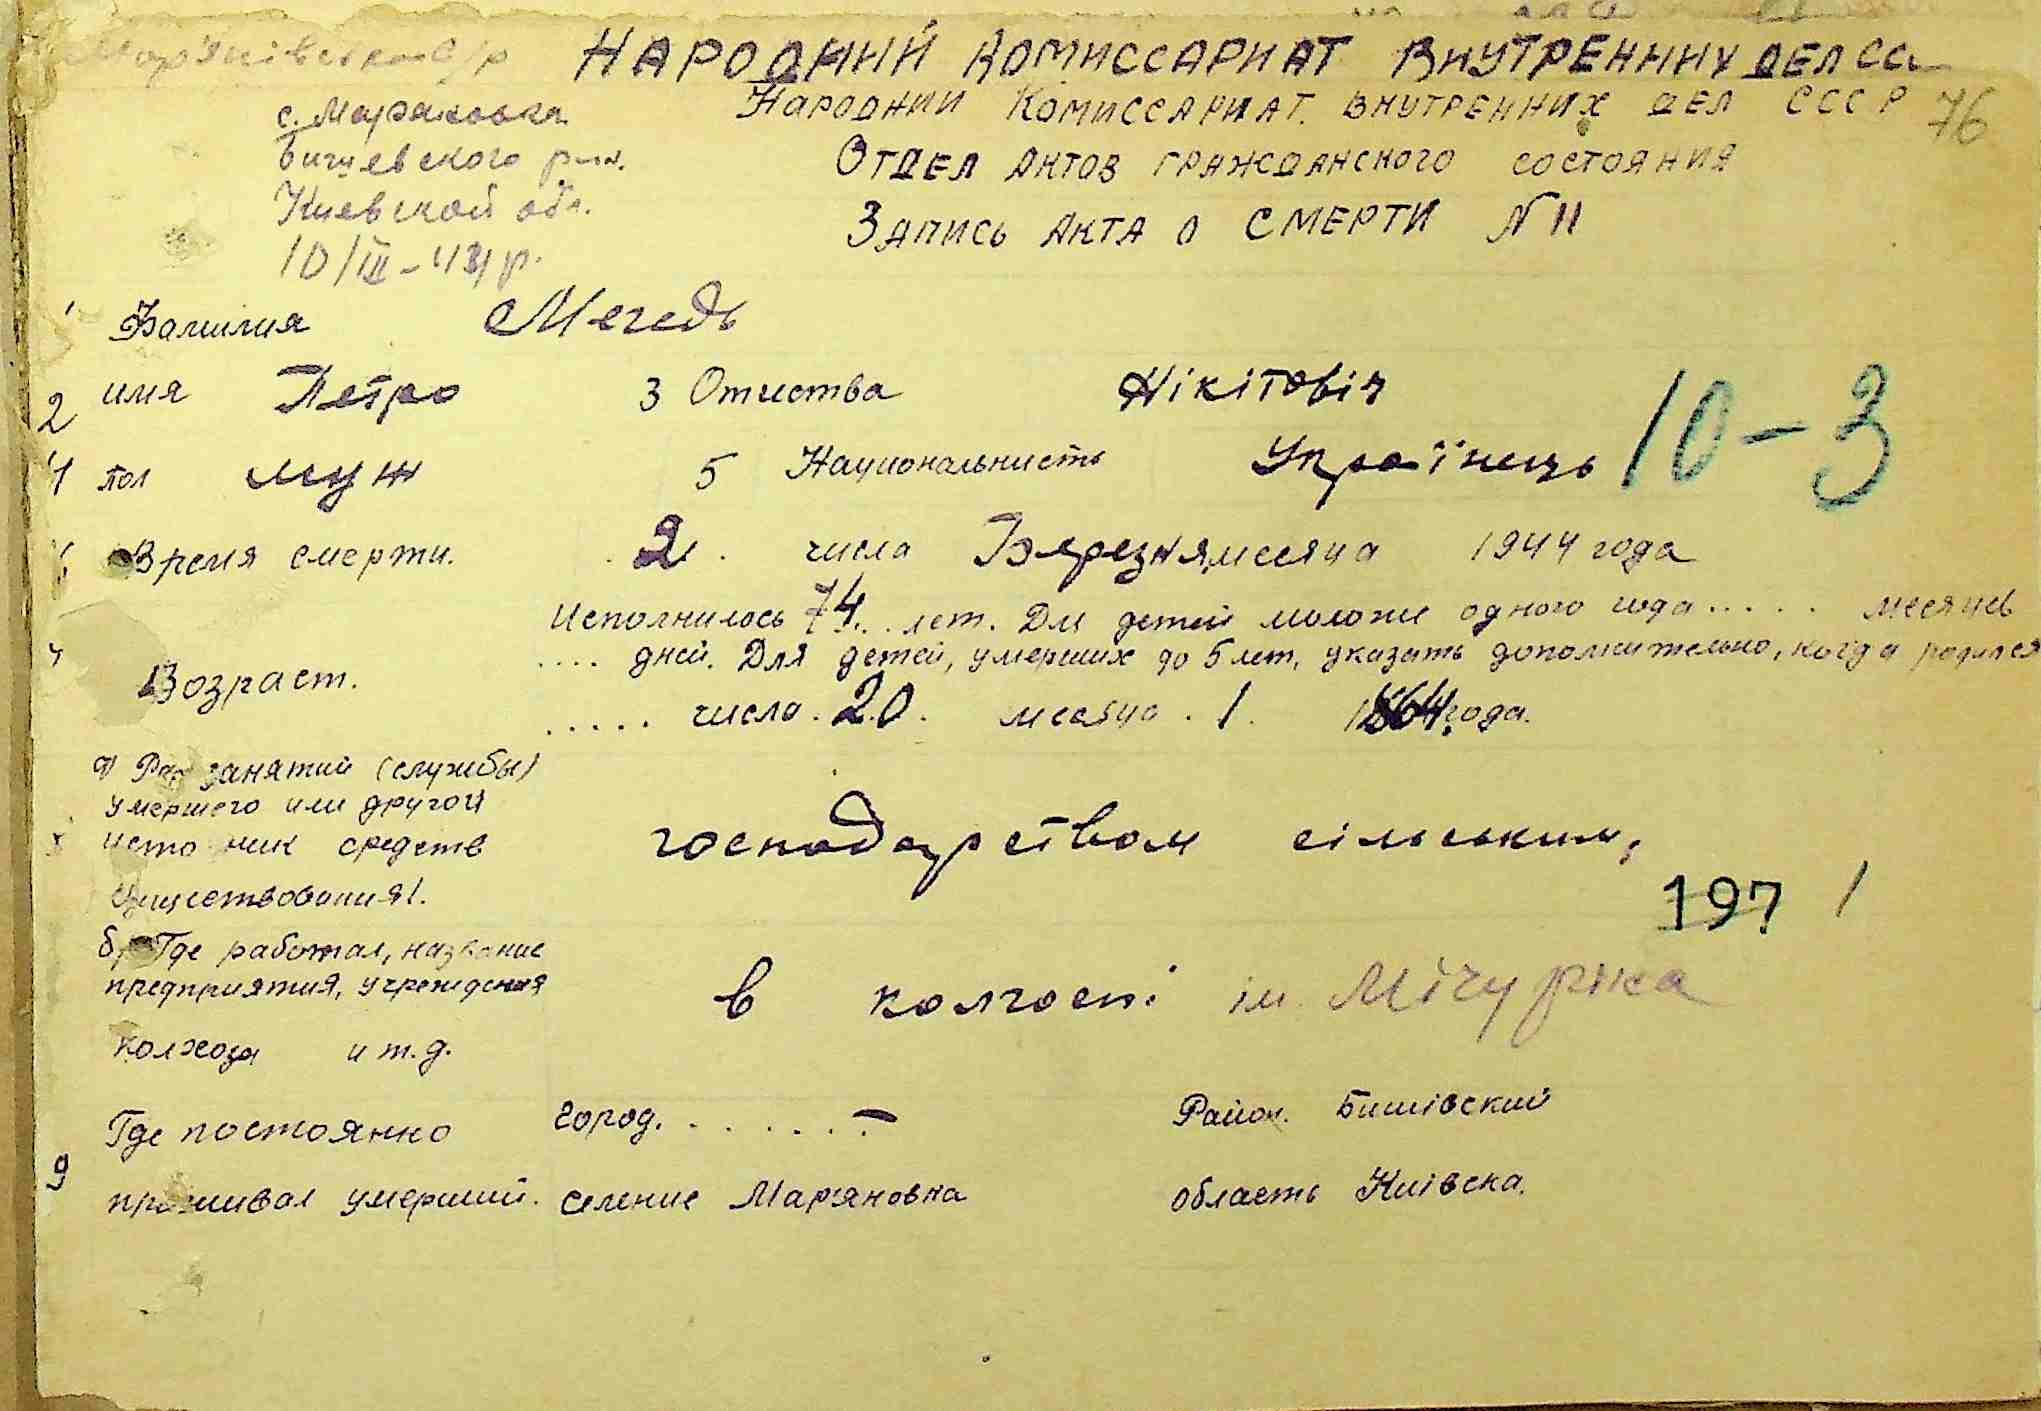 Мар'янівська с/р
НАРОДНИЙ КОМИССАРИАТ ВНУТРЕННИХ ДЕЛ СС
76
с. Марьяновка
Народний Комиссариат внутренних дел СССР
Бишевского р-на.
Отдел актов гражданского состояния
Киевской обл.
Запись акта о смерти N 11
10/III-44 р.
1 Фамилия Мегедь
2 имя Петро 3 Отчества Нікітовіч
10-3
4 пол муж 5 Национальнисть Українець
Время смерти. 2. числа Березня месяца 1944 года
Исполнилось 74... лет. Для детей моложе одного года..... месяцев
.... дней. Для детей, умерших до 5 лет, указать дополнительно, когда родился
7 Возраст.
..... числа. 20. месяца. 1. 1864. года.
а) Род занятий (службы)
умершего или другой
источник средств
существования/.
господарством сільським,
197 /
б) Где работал, название
предприятия, учреждения
колхоза и т.д.
в колгоспі ім. Мічуріна
Где постоянно город. . . . . . . – Район. Бишівский
9
проживал умерший. селение Мар'яновка область Київска.